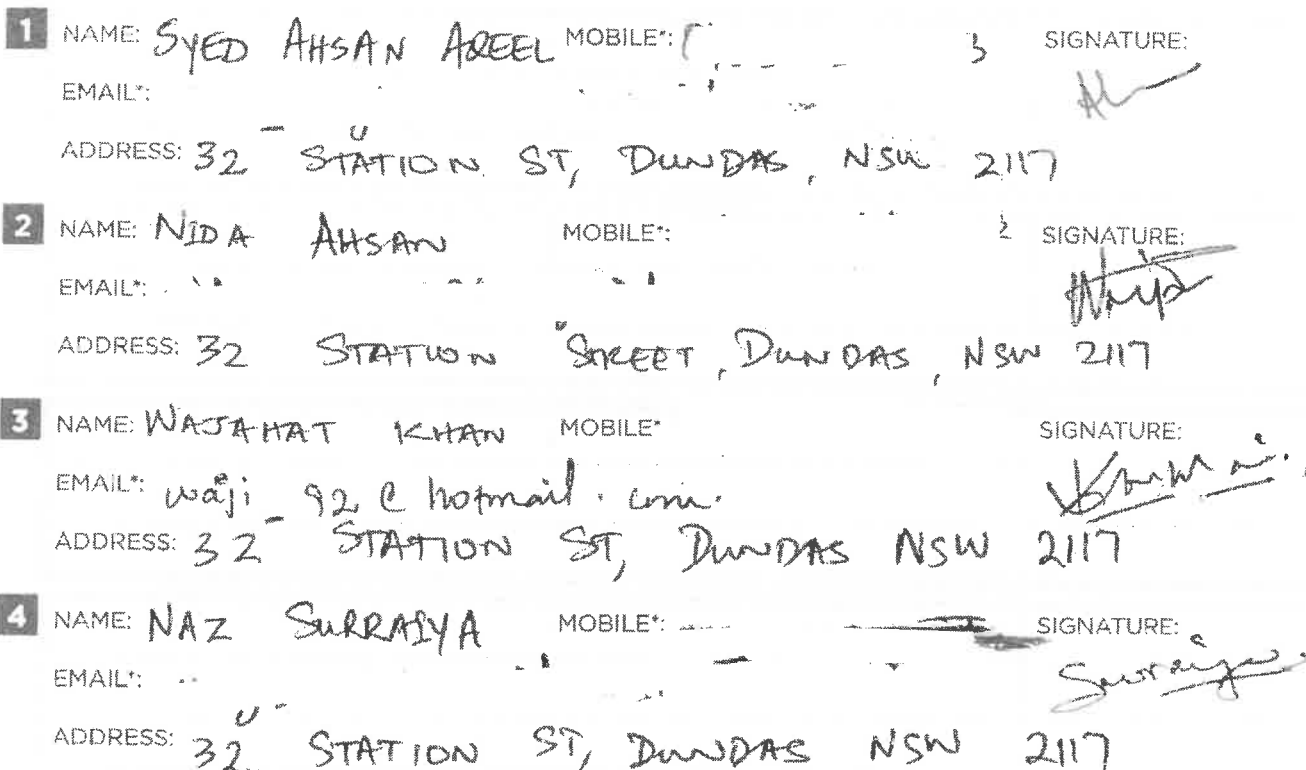 1 NAME: SYED AHSAN AQEEL MOBILE*: 3 SIGNATURE:
EMAIL*:
ADDRESS: 32 STATION ST, DUNDAS, NSW 2117
2 NAME: NIDA AHSAN MOBILE*: SIGNATURE:
EMAIL*:
ADDRESS: 32 STATION STREET, DUNDAS, NSW 2117
3 NAME: WAJAHAT KHAN MOBILE* SIGNATURE:
EMAIL*: waji 92 @ hotmail.com
ADDRESS: 32 STATION ST, DUNDAS NSW 2117
4 NAME: NAZ SURRAIYA MOBILE*: SIGNATURE:
EMAIL*:
ADDRESS: 32 STATION ST, DUNDAS NSW 2117